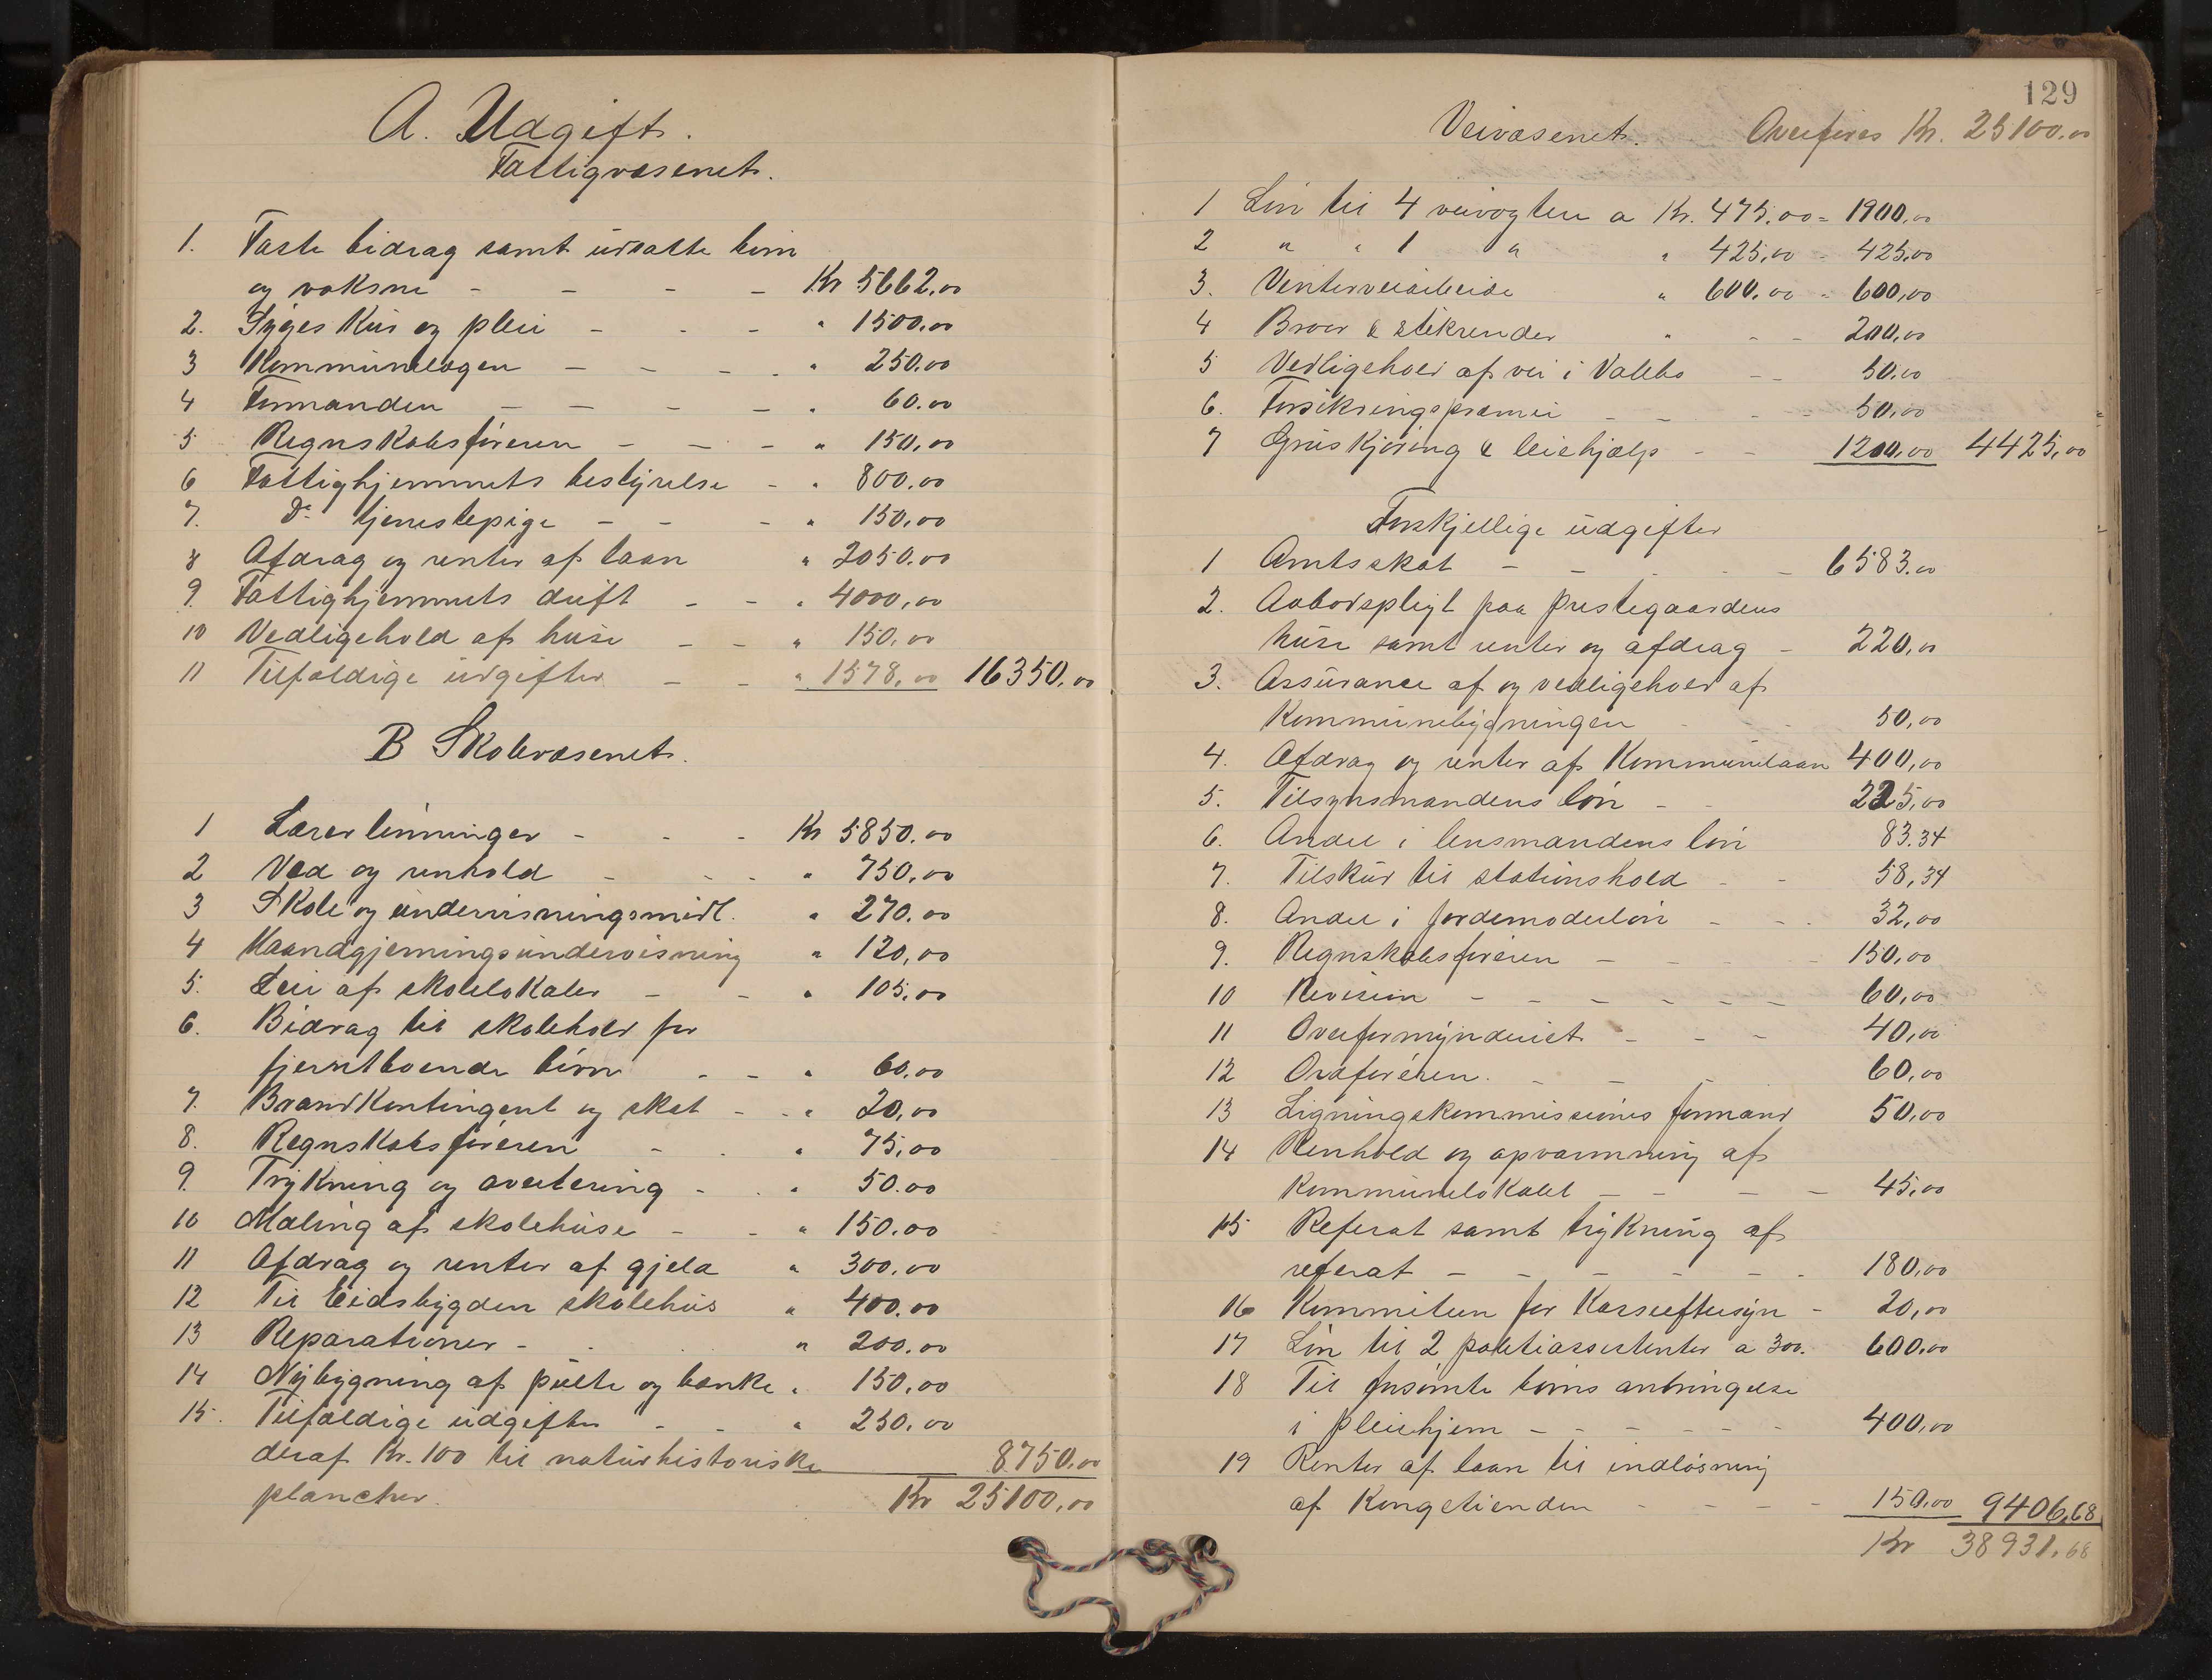 A. Udgift.
Fattigvæsenet.
1. Faste bidrag samt udsatte børn
og voksne - - - - Kr 5662,00
2. Syges kur og pleie - - - " 1500.00
3 Kommunelægen - - - - " 250.00
4 Formanden - - - - " 60.00
5 Regnskabsføreren - - - " 150,00
6 Fattighjemmets bestyrelse - " 800.00
7. Do tjenestepige - - - " 150,00
8 Afdrag og renter af laan " 2050.00
9. Fattighjemmets drift - - " 4000,00
10 Vedligehold af huse - - " 150,00
11 Tilfældige udgifter - - " 1578,00 16350,00
B Skolevæsenet.
1 Lærerlønninger - - - Kr 5850.00
2 Ved og renhold - - - " 750,00
3 Skole og undervisningsmidl. " 270.00
4 Haandgjerningsundervisning " 120,00
5. Leie af skolelokaler - - " 105,00
6. Bidrag til skolehold for
fjerntboende børn - - " 60,00
7. Brandkontingent og skat - - " 20,00
8. Regnskabsføreren - - " 75,00
9. Trykning og avertering - - " 50.00
10 Maling af skolehuse - - " 150.00
11 Afdrag og renter af gjeld " 300,00
12 Til Eidsbygden skolehus " 400.00
13 Reparationer - - - " 200.00
14 Nybygning af pulte og bænke " 150,00
15. Tilfældige udgifter - - " 250,00
deraf Kr. 100 til naturhistoriske 8750.00
plancher. Kr 25100,00
129
Veivæsenet. Overføres Kr. 25100.00
1 Løn til 4 veivogtere a Kr. 475.00 = 1900,00
2 " " 1 " " 425,00 - 425,00
3. Vinterveiarbeide " 600,00 - 600,00
4 Broer & stikrender " - - 200,00
5 Vedligehold af vei i Valebø - - 50,00
6. Forsikringspræmie - - - - 50,00
7 Gruskjøring & leiehjælp - - 1200,00 4425,00
Forskjellige udgifter
1 Amtsskat - - - - - 6583.00
2. Aabodspligt paa prestegaardens
huse samt renter og afdrag - 220,00
3. Assurance af og vedligehold af
Kommunebygningen - - - 50,00
4. Afdrag og renter af Kommunelaan 400,00
5. Tilsynsmandens løn - - 225,00
6. Andel i lensmandens løn 83.34
7. Tilskud til stationshold - - 58,34
8. Andel i jordemoderløn - - - 32,00
9. Regnskabsføreren - - - - 150,00
10 Revision - - - - - - 60,00
11 Overformynderiet - - - 40,00
12 Ordføreren. - - - 60,00
13 Ligningskommissiones formand 50,00
14 Renhold og opvarmning af
Kommunelokalet - - - - 45,00
15 Referat samt trykning af
referat - - - - - - 180,00
16 Kommiteen for Kasseeftersyn - 20,00
17 Løn til 2 politiassistenter a 300. 600.00
18 Til forsømte børns anbringelse
i pleiehjem - - - - - 400,00
19 Renter af laan til indløsning
af Kongetienden - - - - 150.00 9406,68
Kr 38931,68